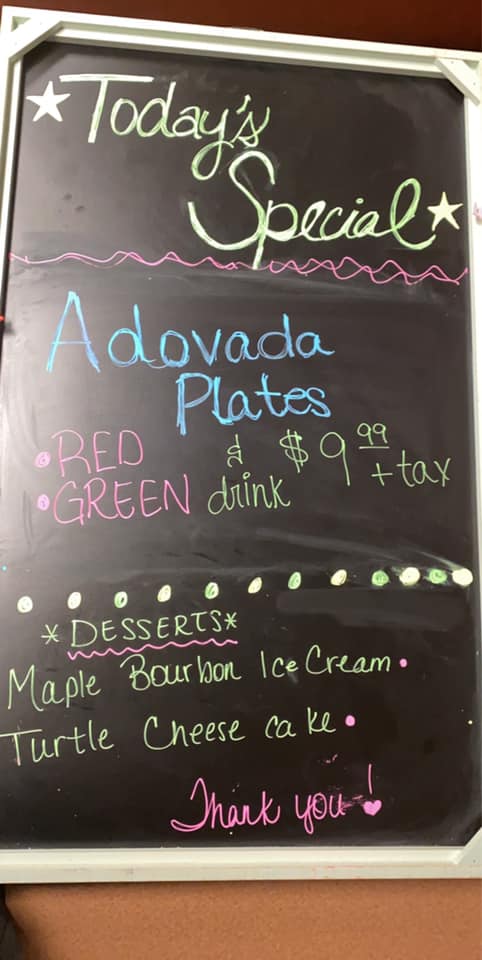 Today's
Special
Adovada
Plates
RED & $9.99
GREEN drink + tax
*DESSERTS*
Maple Bourbon Ice Cream
Turtle Cheese cake
Thank you!